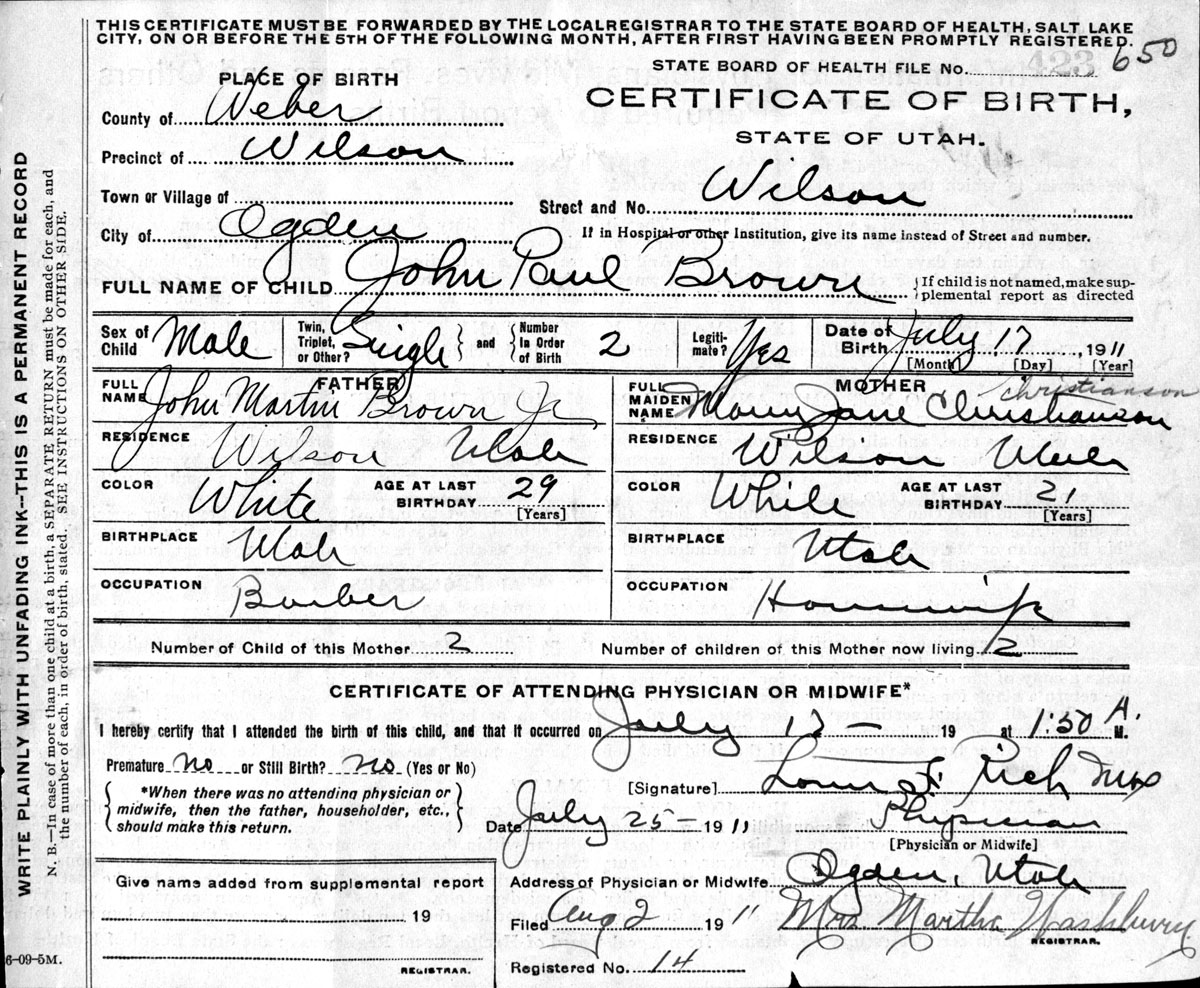 THIS CERTIFICATE MUST BE FORWARDED BY THE LOCAL REGISTRAR TO THE STATE BOARD OF HEALTH, SALT LAKE
CITY, ON OR BEFORE THE 5TH OF THE FOLLOWING MONTH, AFTER FIRST HAVING BEEN PROMPTLY REGISTERED.
650
STATE BOARD OF HEALTH FILE No. 423
PLACE OF BIRTH
CERTIFICATE OF BIRTH,
STATE OF UTAH.
County of Weber
Precinct of Wilson
Town or Village of
Street and No. Wilson
City of Ogden
If in Hospital or other Institution, give its name instead of Street and number.
FULL NAME OF CHILD John Paul Brown
{If child is not named, make sup-
plemental report as directed
Sex of Child Male Twin, Triplet, or Other? Single and Number In Order of Birth 2 Legiti-mate? Yes Date of Birth July 17, 1911
[Month] [Day] [Year]
FATHER
FULL NAME John Martin Brown Jr
RESIDENCE Wilson Utah
COLOR White AGE AT LAST BIRTHDAY 29 [Years]
BIRTHPLACE Utah
OCCUPATION Barber
MOTHER
Christianson
FULL MAIDEN NAME Mary Jane Christianson
RESIDENCE Wilson Utah
COLOR White AGE AT LAST BIRTHDAY 21 [Years]
BIRTHPLACE Utah
OCCUPATION Housewife
Number of Child of this Mother 2 Number of children of this Mother now living 2
CERTIFICATE OF ATTENDING PHYSICIAN OR MIDWIFE*
I hereby certify that I attended the birth of this child, and that it occurred on July 17 - 19 at 1:50 A. M.
Premature No or Still Birth? No (Yes or No)
*When there was no attending physician or
midwife, then the father, householder, etc.,
should make this return.
[Signature] Rich
Date July 25 - 1911 Physician
[Physician or Midwife]
Address of Physician or Midwife Ogden, Utah
Give name added from supplemental report
19
REGISTRAR.
Filed Aug 2 1911 Mrs. Martha Washburn
REGISTRAR.
Registered No. 14
6-09-5M.
WRITE PLAINLY WITH UNFADING INK--THIS IS A PERMANENT RECORD
N. B.—In case of more than one child at a birth, a SEPARATE RETURN must be made for each, and
the number of each, in order of birth, stated. SEE INSTRUCTIONS ON OTHER SIDE.